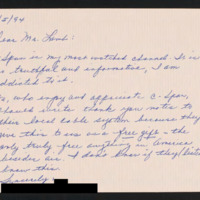 /5/94
Dear Ms. Lamb:
Span is my most watched channel. It is
so truthful and informative, I am
addicted to it.
who enjoy and appreciate C-Span,
should write thank you notes to
their local cable system because they
give this to us as a free gift - the
only truly free anything in America
besides air. I don't know if they/listeners
know this.
Sincerely